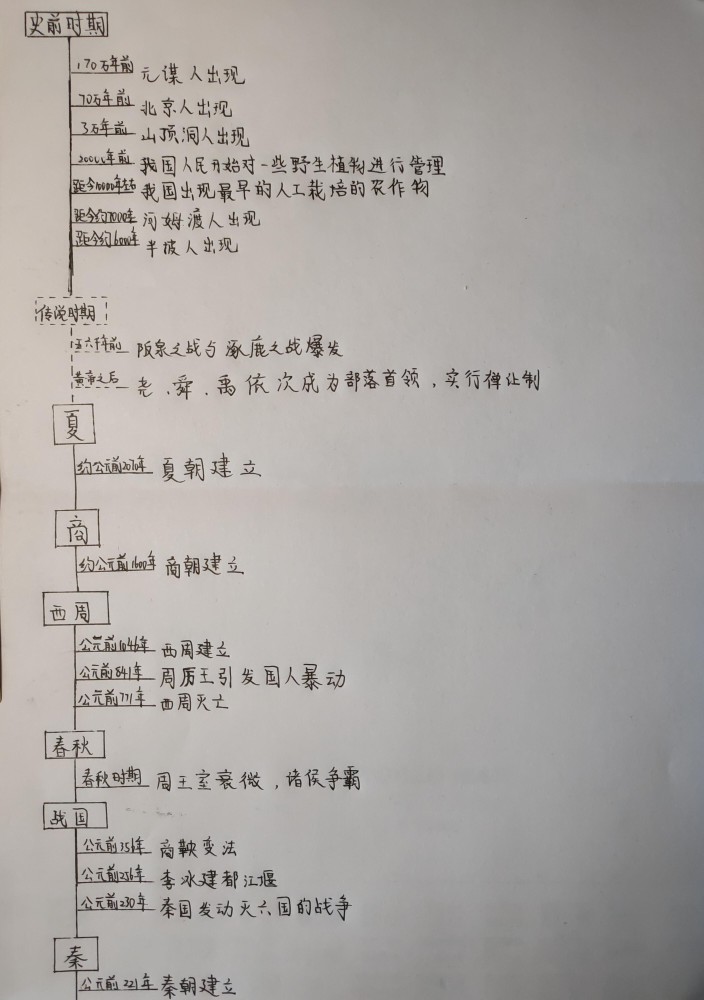 史前时期
170万年前 元谋人出现
70万年前 北京人出现
3万年前 山顶洞人出现
20000年前 我国人民开始对一些野生植物进行管理
距今10000年左右 我国出现最早的人工栽培的农作物
距今约7000年 河姆渡人出现
距今约6000年 半坡人出现
传说时期
五六千年前 阪泉之战与涿鹿之战爆发
黄帝之后 尧、舜、禹依次成为部落首领，实行禅让制
夏
约公元前2070年 夏朝建立
商
约公元前1600年 商朝建立
西周
公元前1046年 西周建立
公元前841年 周厉王引发国人暴动
公元前771年 西周灭亡
春秋
春秋时期 周王室衰微，诸侯争霸
战国
公元前356年 商鞅变法
公元前256年 李冰建都江堰
公元前230年 秦国发动灭六国的战争
秦
公元前221年 秦朝建立